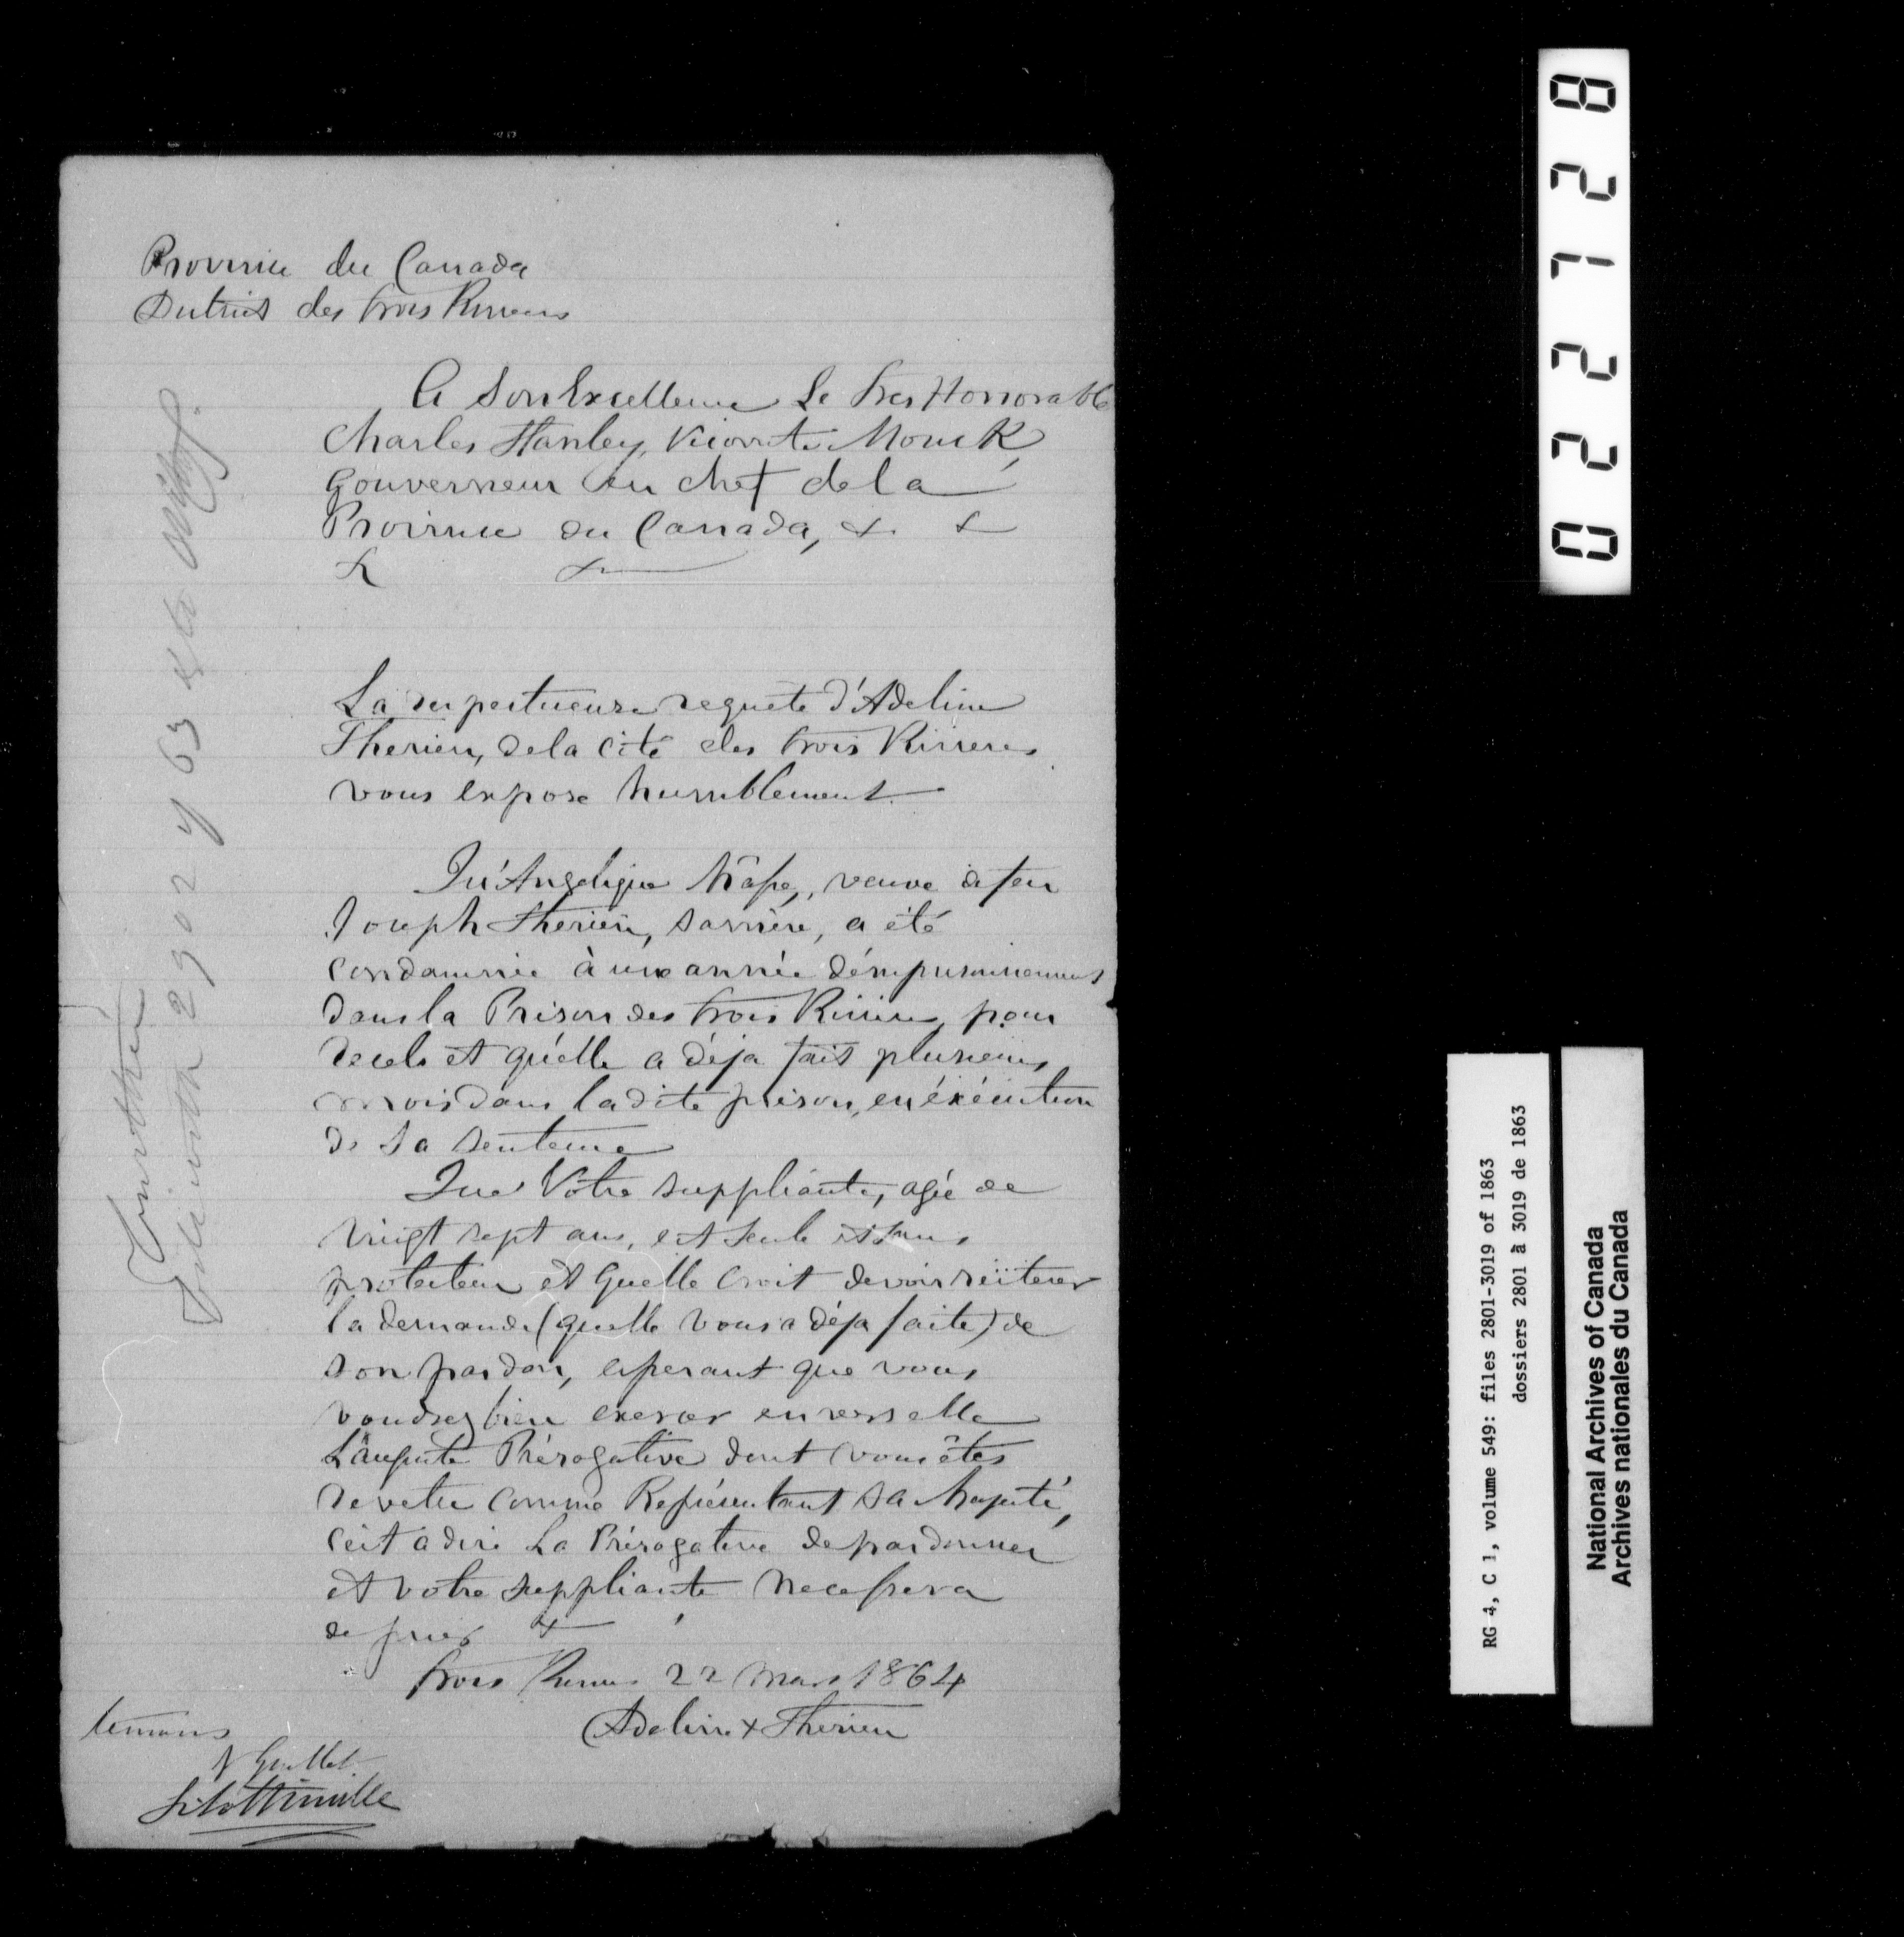 Province du Canada
District des trois Rivieres
A Son Excellence Le tres Honorable
Charles Stanley, Vicomte Monck,
Gouverneur en chef de la
Province du Canada, &. &
& &
La respectueuse requête d'Adeline
Therien, de la Cité des trois Rivieres
vous expose humblement
Qu'Angelique veuve de feu
Joseph Therien, sa mère, a été
condamnée à une année d'emprisonnement
dans la Prison des trois Rivieres, pour
recels et qu'elle a déja fait plusieurs
mois dans la dite prison, en éxécution
de sa sentence
Que Votre suppliante, agée de
vingt sept ans, est seule et sans
protecteur et quelle croit devoir réiterer
la demande (quelle vous a déja faite) de
son pardon, esperant que vous
voudrez bien exercer envers elle
L'auguste Prérogative dont vous êtes
revetu comme Représentant sa Majesté,
c'est a dire La Prérogative de pardonner
et votre suppliante ne cessera
de prier &
trois Rivieres 22 Mars 1864
Adeline + Therien
temoins
Guillet
File with 2902 of 63
0 2 2 7 2 8
RG 4, C 1, volume 549: files 2801-3019 of 1863
dossiers 2801 à 3019 de 1863
National Archives of Canada
Archives nationales du Canada